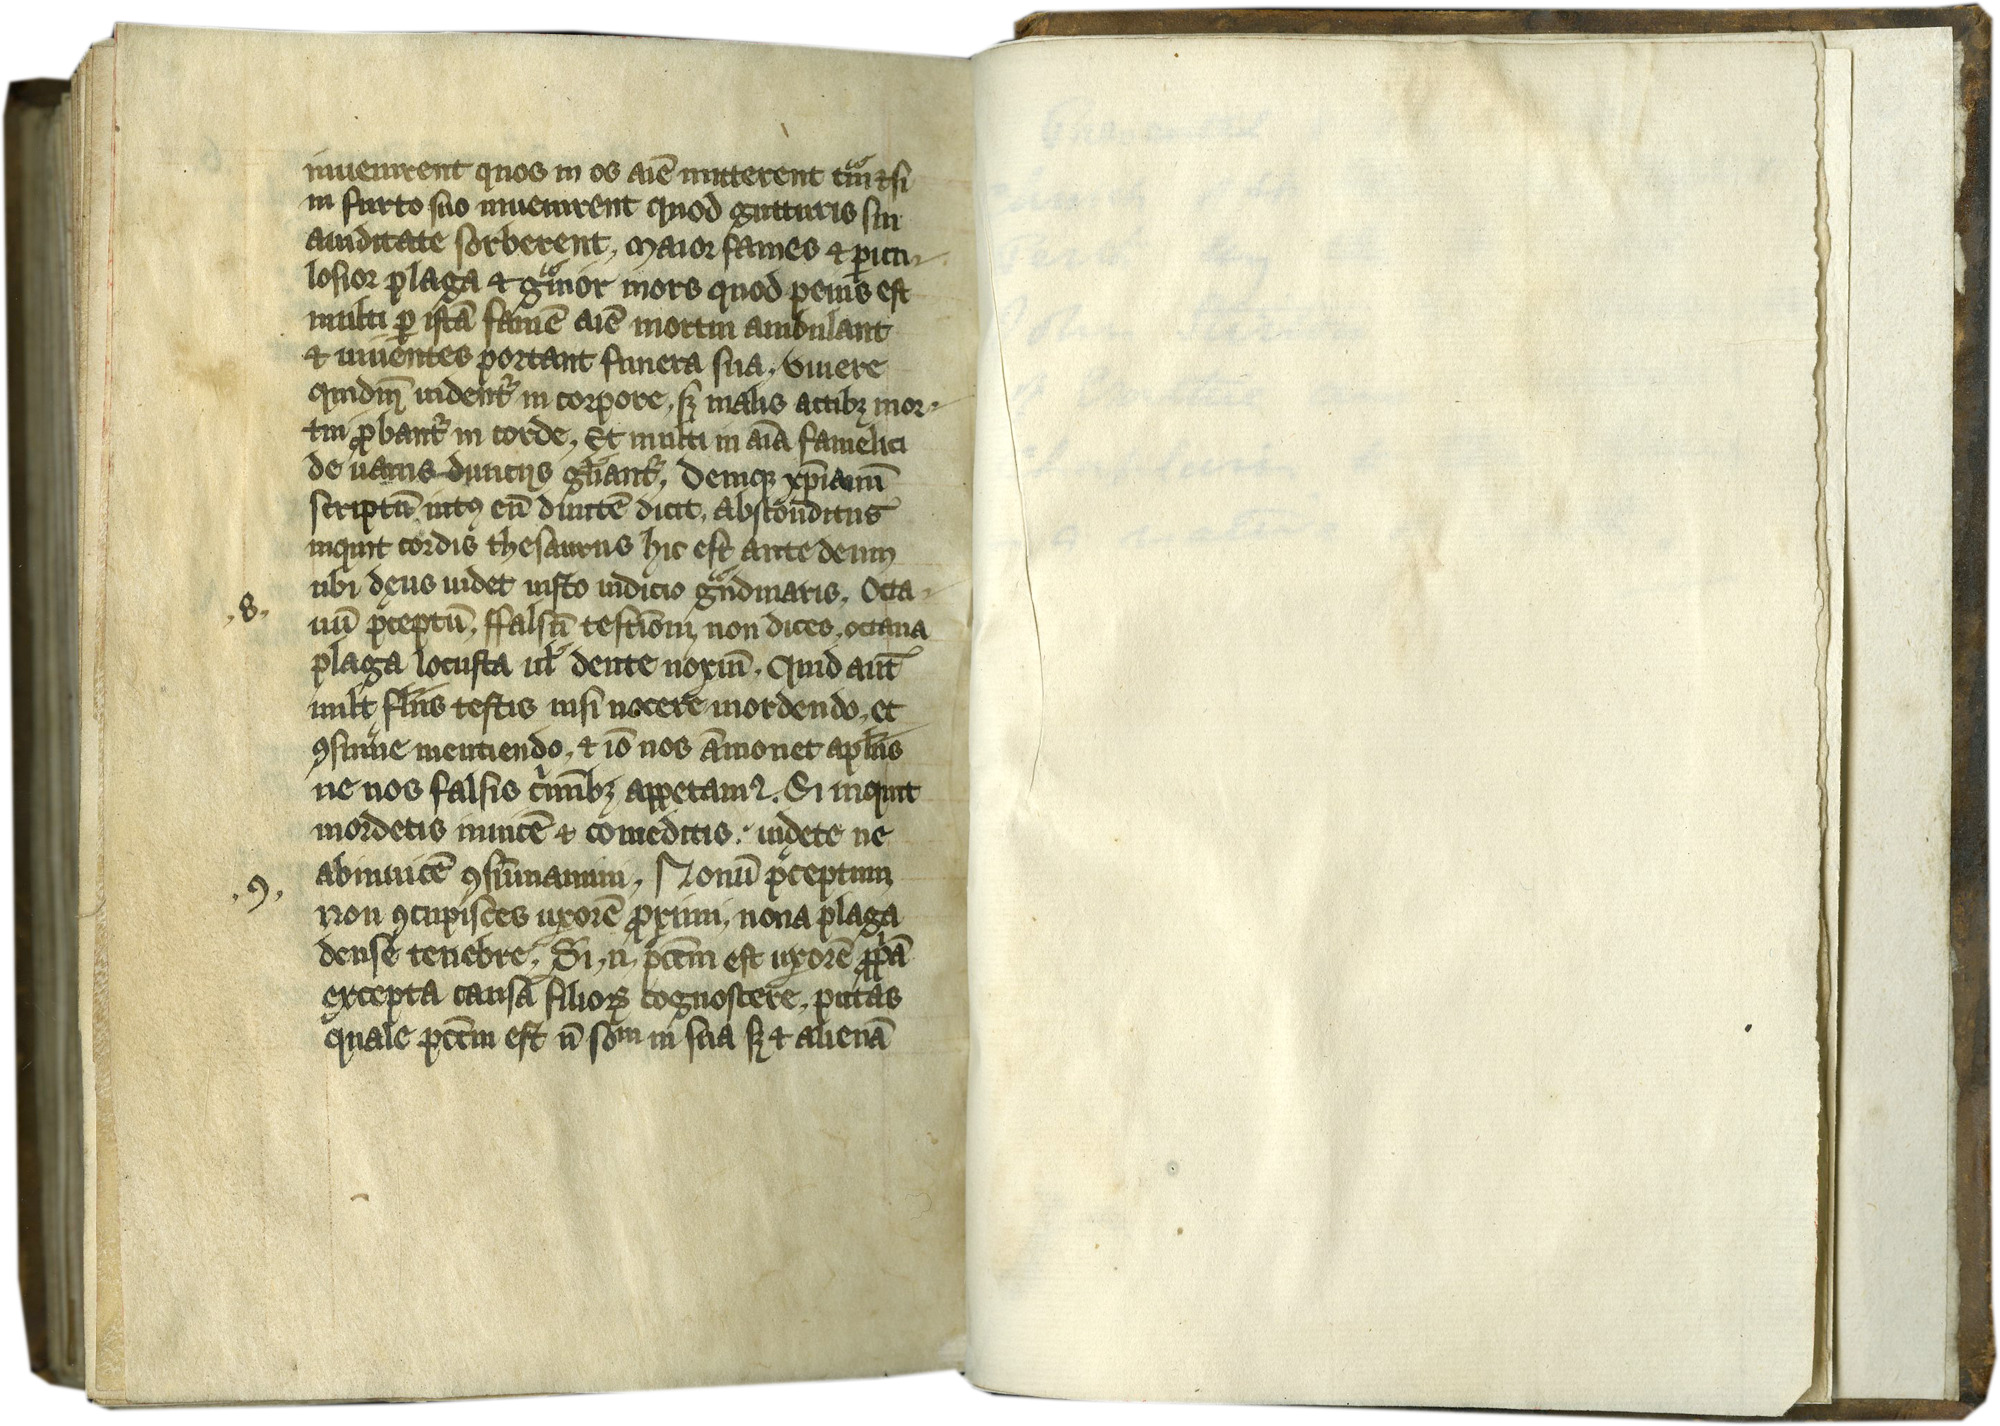 inuenirent quos in os aīē mitterent tm̄ ⁊ si
in furto suo inuenirent quod gutturis sui
auiditate sorberent, Maior fames ⁊ ꝑicu-
losior plaga ⁊ gͣuior mors quod peius est
multi ꝑ istā famē aīē mortui ambulant
⁊ uiuentes portant funera sua, Viuere
quidm̄ uident᷑ in corpore, sꝫ malis actibꝫ mor-
tui ꝓbant᷑ in corde, Et multi in aīā famelici
de uanis diuicijs gl̄iant᷑, Deniqꝫ xp̄ianū
scriptū intꝰ eū diuitē dicit, Absconditus
inquit cordis thesaurus hic est ante deum
ubi deus uidet iusto iudicio gͣndinaris, Octa-
.8.
uū p̄ceptū, ffalsū testīom̄ non dices, octaua
plaga locusta ul̄ dente noxiū, Quid aut̄
uult fl̄us testis nisi nocere mordendo, et
ꝯsumͤe mentiendo, ⁊ iō nos āmonet apl̄us
ne nos falsis cͥmībꝫ appetamꝰ. Si inquit
mordetis inuicē ⁊ comeditis: uidete ne
abinuicē ꝯsūmamini, Nonū p̄ceptum
.9.
Non ꝯcupisces uxorē ꝓximi, nona plaga
dense tenebre, Si .n. pc̄cm̄ est uxorē ꝓpͥā
excepta causā filioꝝ cognoscere, putas
quale pc̄cm̄ est n̄ solͫ in sua sꝫ ⁊ alienā